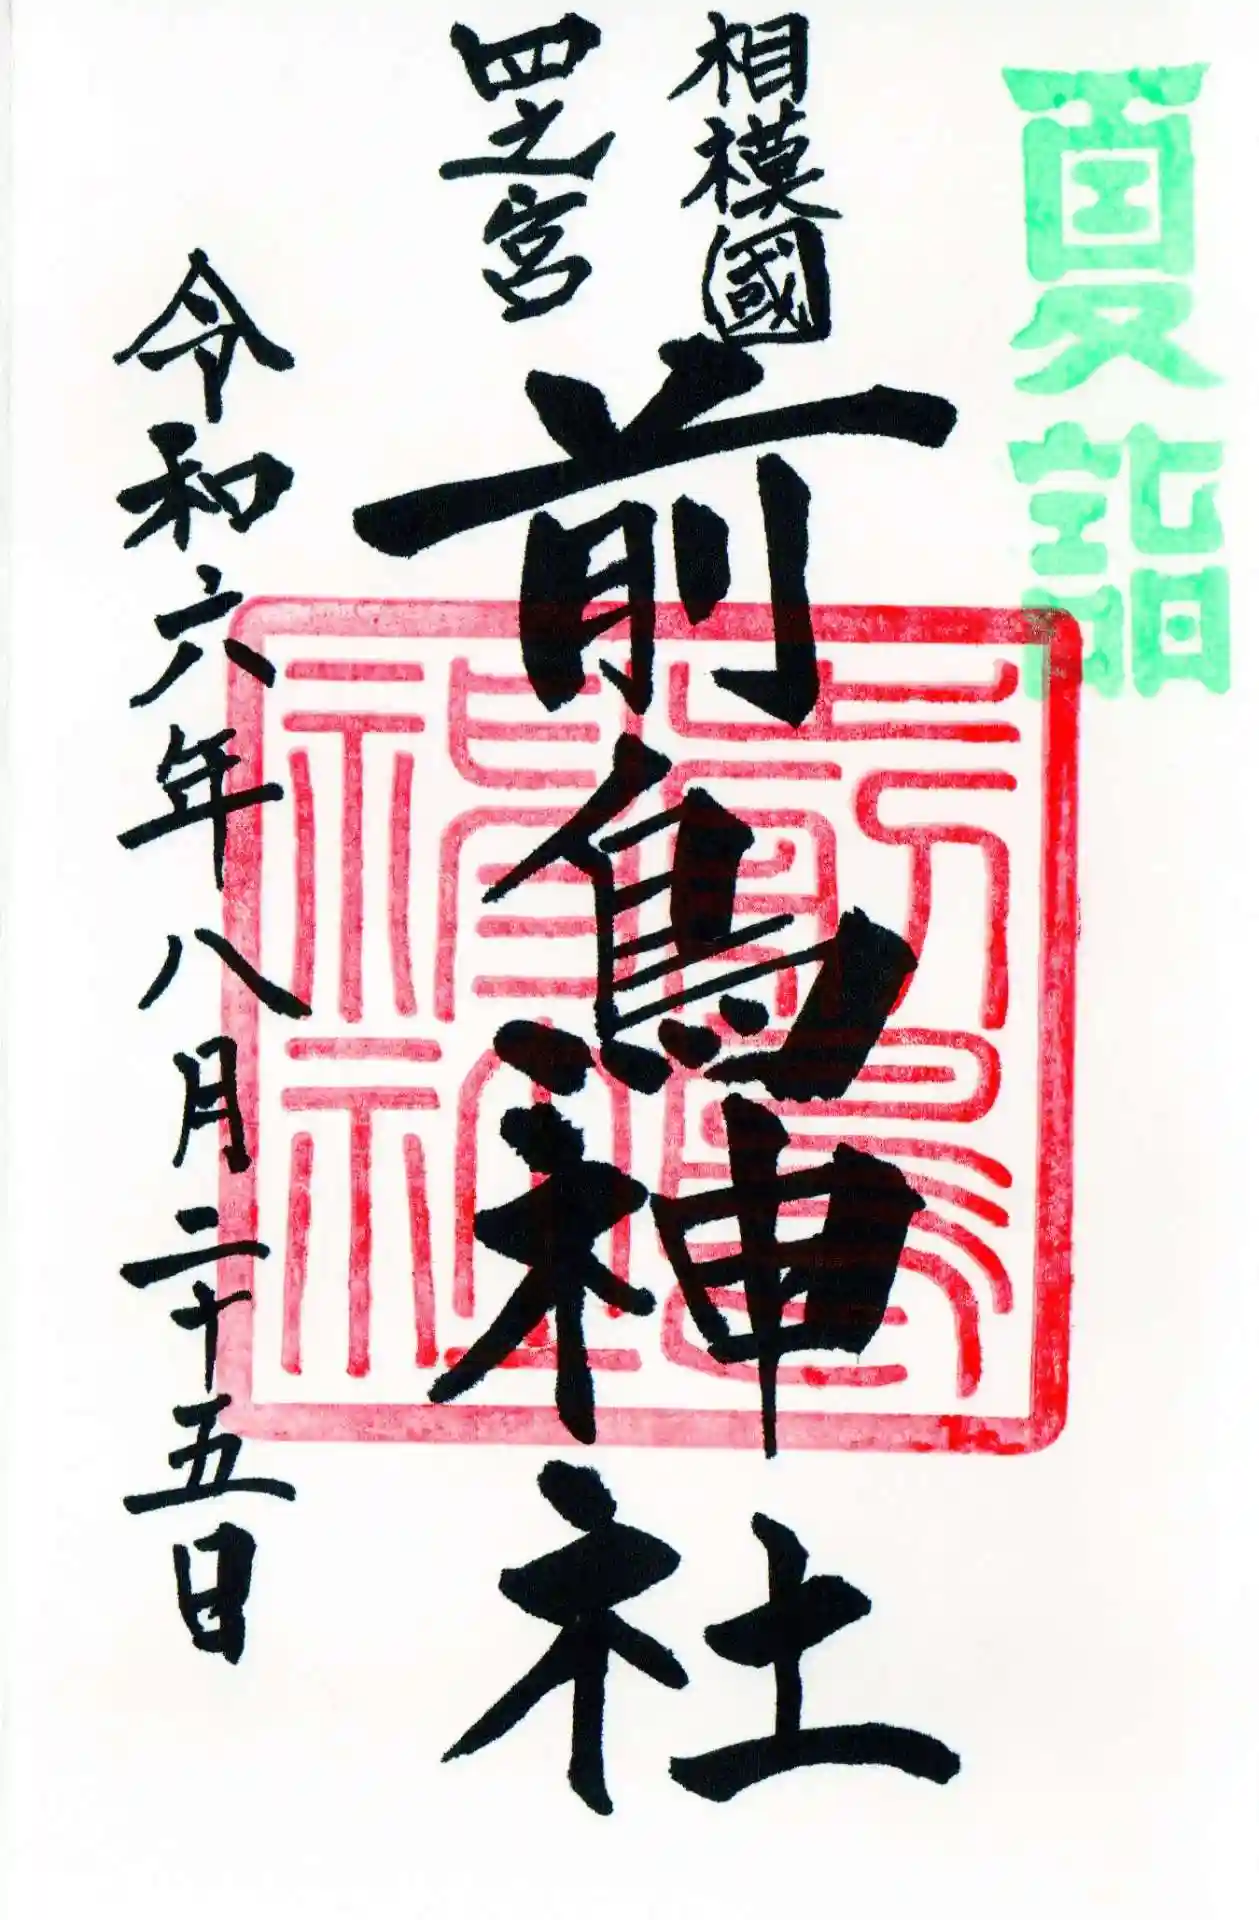 夏詣
相模國
四之宮
前鳥神社
令和六年八月二十五日